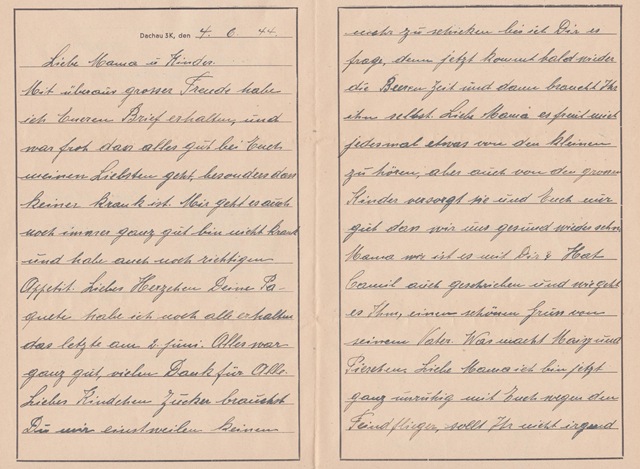 Dachau 3K, den 4. 6. 44.
Liebe Mama u Kinder.
Mit überaus grosser Freude habe
ich Eueren Brief erhalten, und
war froh dass alles gut bei Euch
meinen Liebsten geht, besonders dass
keiner krank ist. Mir geht es auch
noch immer ganz gut bin nicht krank
und habe auch noch richtigen
Appetit. Liebes Herzchen Deine Pa-
quete habe ich noch alle erhalten
das letzte am 2. Juni. Alles war
ganz gut, vielen Dank für Alle.
Liebes Kindchen Zucker brauchst
Du mir einstweilen keinen
mehr zu schicken bis ich Dir es
frage, denn jetzt kommt bald wieder
die Beeren Zeit und dann braucht Ihr
ihn selbst. Liebe Mama es freut mich
jedesmal etwas von den kleinen
zu hören, aber auch von die grossen
Kinder versorgt sie und Euch nur
gut dass wir uns gesund wieder sehn
Mama wo ist es mit Dir? Hat
Camil auch geschrieben und wie geht
es Ihm, einen schönen Gruss von
seinem Vater. Was macht und
Pierchen. Liebe Mama ich bin jetzt
ganz unruhig mit Euch wegen den
Feindflieger, sollt Ihr nicht irgend